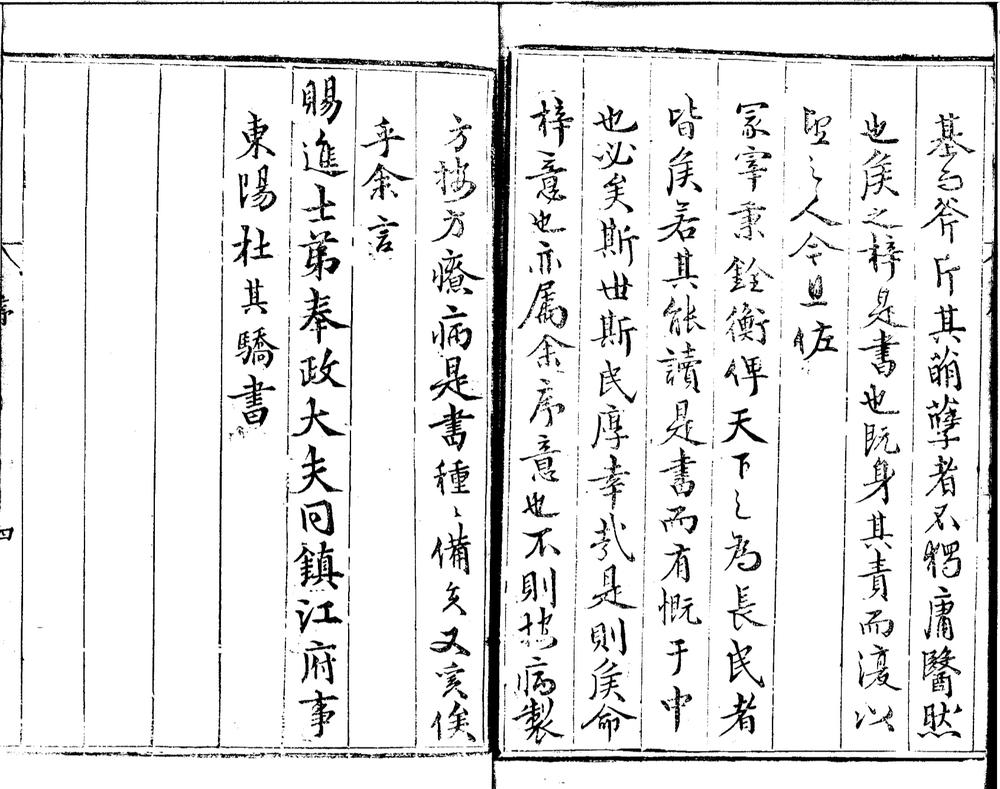 基而斧斤其萌孽者不獨庸醫然
也矦之梓是書也旣身其責而復以
望之人今且佐
冢宰秉銓衡俾天下之為長民者
皆矦若其能讀是書而有慨于中
也必矣斯世斯民厚幸哉是則矦命
梓意也亦属余序意也不則按病製
方按方療病是書種〻備矣又奚俟
乎余言
賜進士第奉政大夫同鎮江府事
東陽杜其驕書
序
四